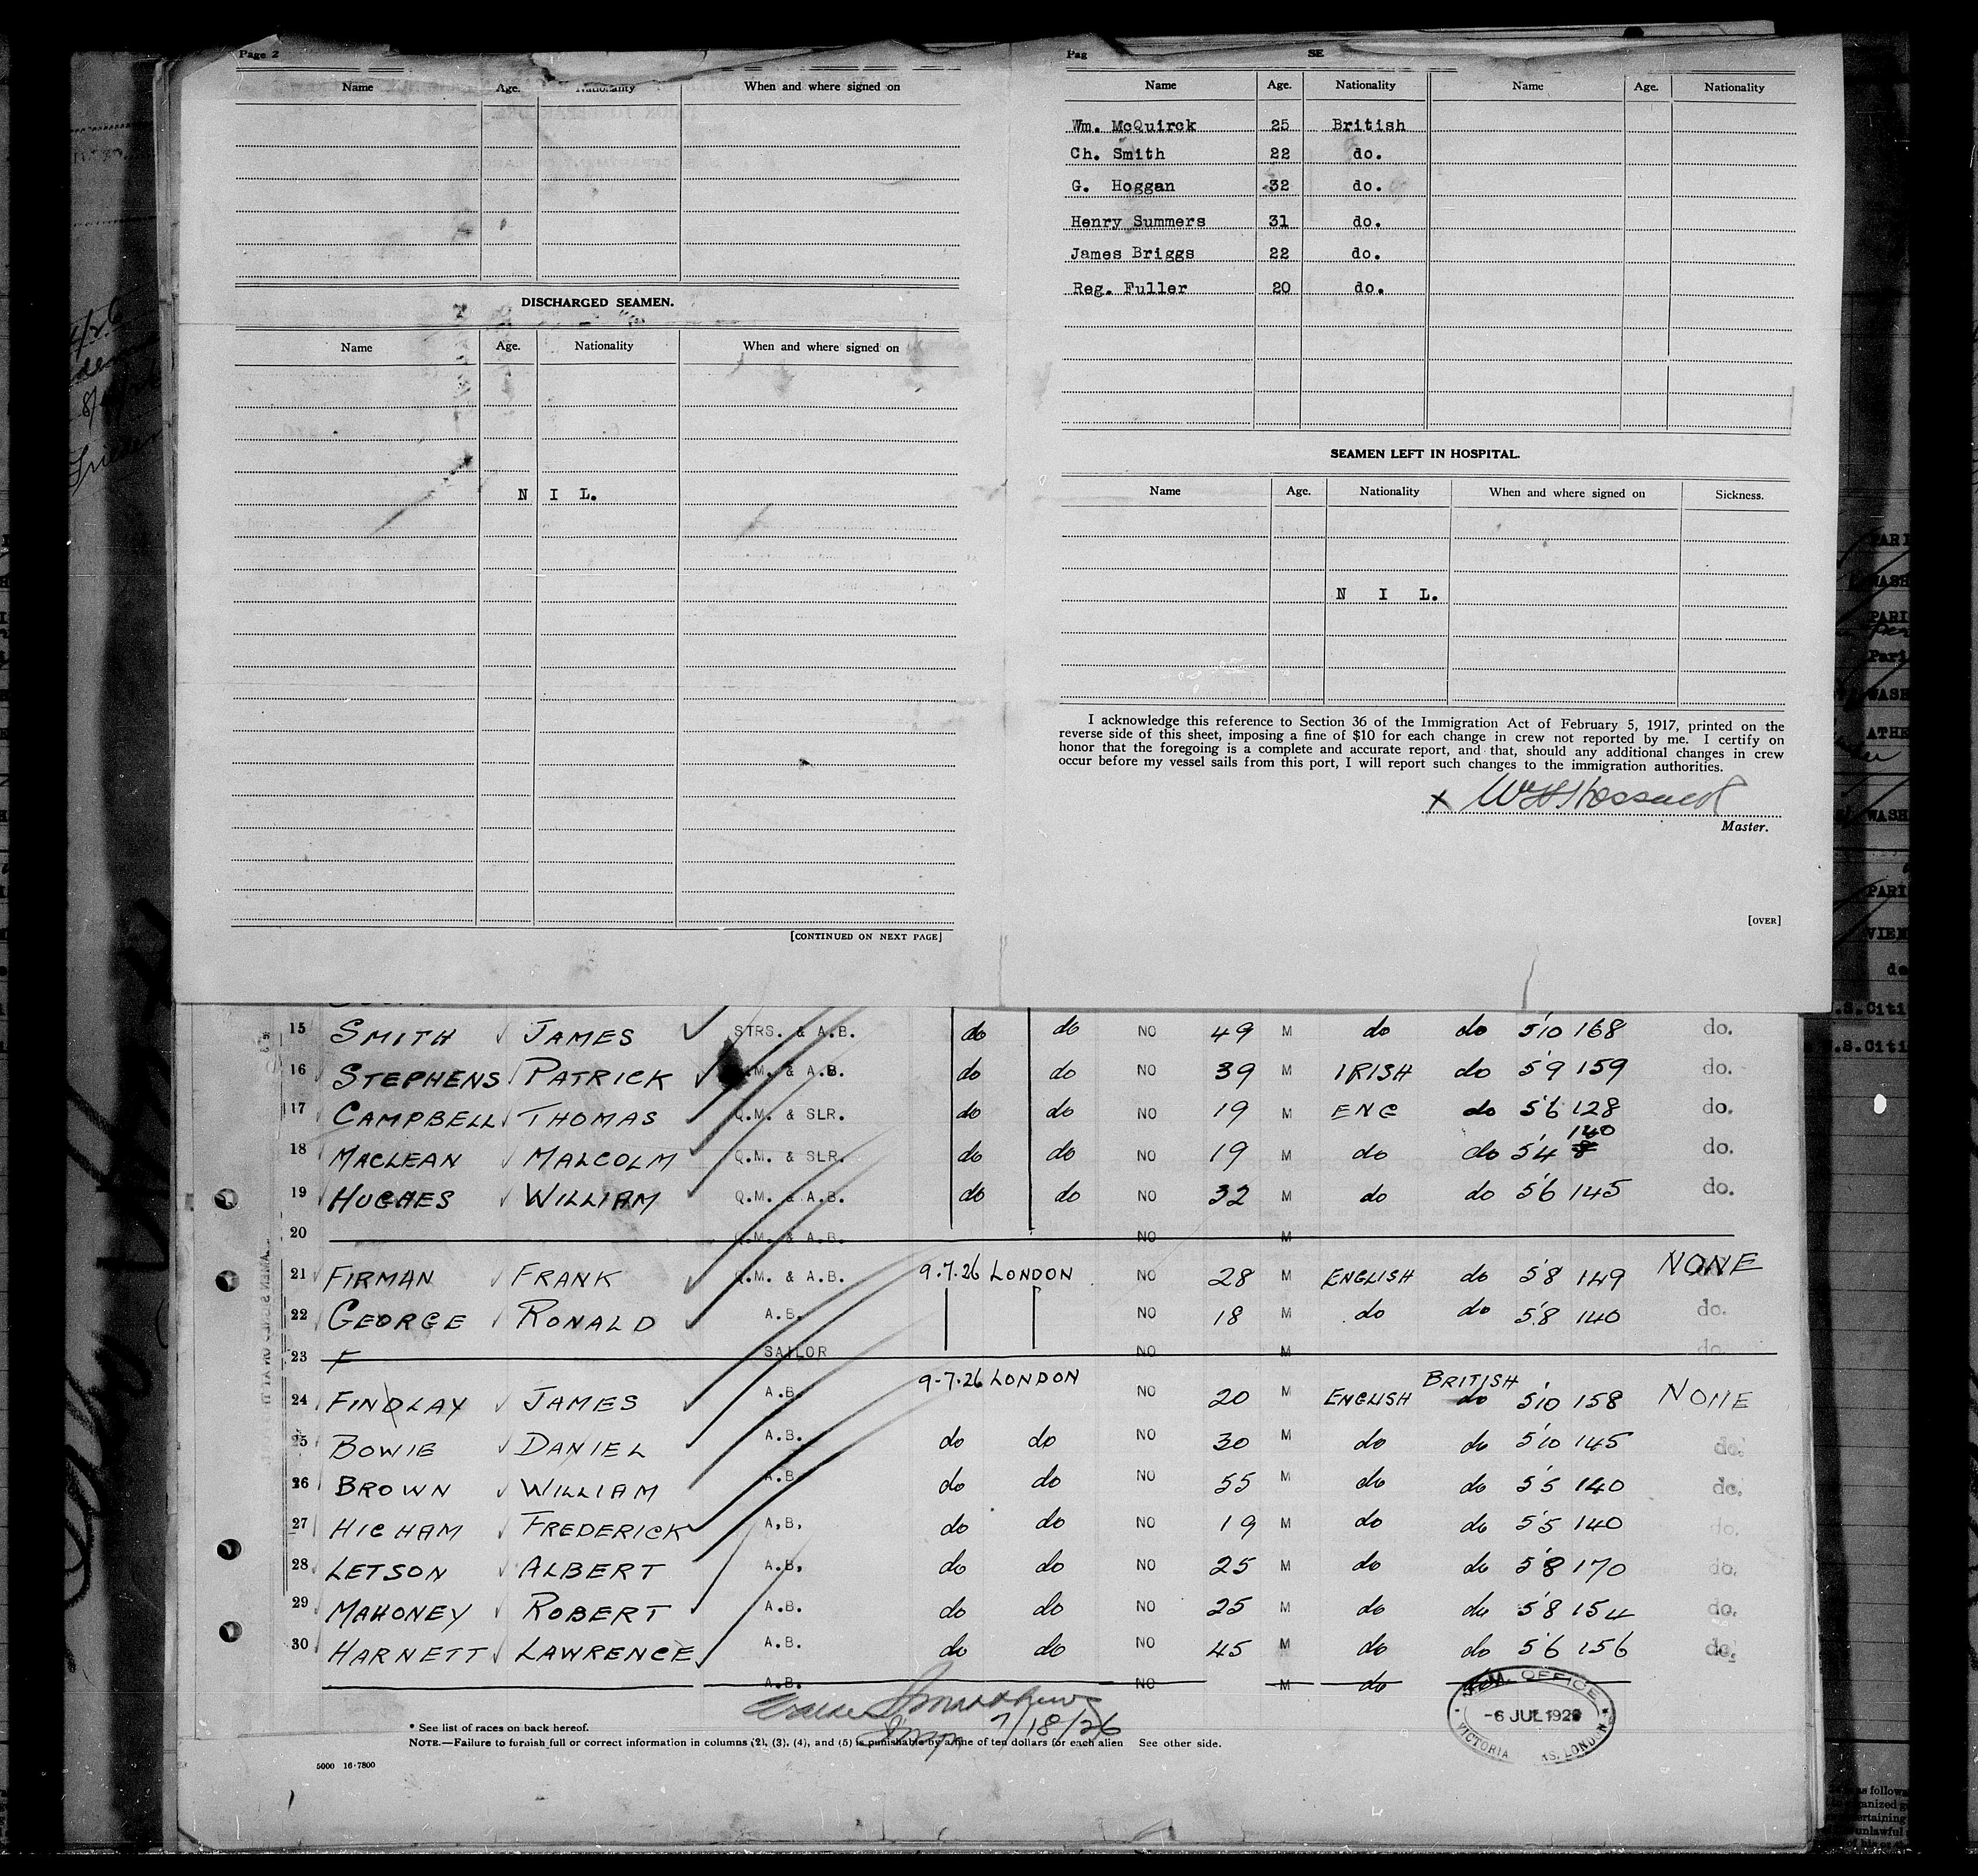 Page 2
Name Age. Nationality When and where signed on
DISCHARGED SEAMEN.
Name Age. Nationality When and where signed on
N I L.
[CONTINUED ON NEXT PAGE]
Pag SE
Name Age. Nationality Name Age. Nationality
Wm. McQuirck 25 British
Ch. Smith 22 do.
G. Hoggan 32 do.
Henry Summers 31 do.
James Briggs 22 do.
Reg. Fuller 20 do.
SEAMEN LEFT IN HOSPITAL.
Name Age. Nationality When and where signed on Sickness.
N I L.
I acknowledge this reference to Section 36 of the Immigration Act of February 5, 1917, printed on the
reverse side of this sheet, imposing a fine of $10 for each change in crew not reported by me. I certify on
honor that the foregoing is a complete and accurate report, and that, should any additional changes in crew
occur before my vessel sails from this port, I will report such changes to the immigration authorities.
x
Master.
[OVER]
15 SMITH JAMES STRS. & A.B. do do NO 49 M do do 5'10 168 do.
16 STEPHENS PATRICK Q.M. & A.B. do do NO 39 M IRISH do 5'9 159 do.
17 CAMPBELL THOMAS Q.M. & SLR. do do NO 19 M ENG do 5'6 128 do.
18 MACLEAN MALCOLM Q.M. & SLR. do do NO 19 M do do 5'4 140 do.
19 HUGHES WILLIAM Q.M. & A.B. do do NO 32 M do do 5'6 145 do.
20 Q.M. & A.B. NO M
21 FIRMAN FRANK Q.M. & A.B. 9.7.26 LONDON NO 28 M ENGLISH do 5'8 149 NONE
22 GEORGE RONALD A.B. NO 18 M do do 5'8 140 do.
23 F SAILOR NO M do.
24 FINDLAY JAMES A.B. 9-7.26 LONDON NO 20 M ENGLISH BRITISH do 5'10 158 NONE
25 BOWIE DANIEL A.B. do do NO 30 M do do 5'10 145 do.
26 BROWN WILLIAM A.B. do do NO 55 M do do 5'5 140 do.
27 HIGHAM FREDERICK A.B. do do NO 19 M do do 5'5 140 do.
28 LETSON ALBERT A.B. do do NO 25 M do do 5'8 170 do.
29 MAHONEY ROBERT A.B. do do NO 25 M do do 5'8 154 do.
30 HARNETT LAWRENCE A.B. do do NO 45 M do do 5'6 156 do.
A.B. NO M do do
7/18/26
* See list of races on back hereof.
NOTE.—Failure to furnish full or correct information in columns (2), (3), (4), and (5) is punishable by a fine of ten dollars for each alien See other side.
5000 16-7800
OFFICE
-6 JUL 1926
VICTORIA LONDON